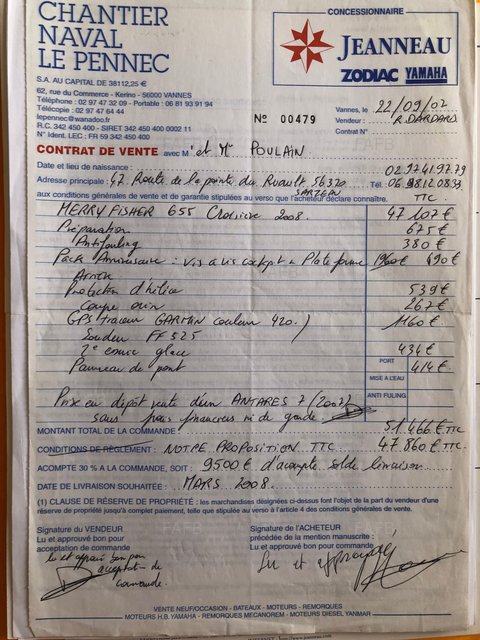 CHANTIER
NAVAL
LE PENNEC
S.A. AU CAPITAL DE 38112,25 €
62, rue du Commerce - Kerino - 56000 VANNES
Téléphone : 02 97 47 32 09 - Portable : 06 81 93 91 94
Télécopie : 02 97 47 64 44
lepennec@wanadoo.fr
R.C. 342 450 400 - SIRET 342 450 400 0002 11
N° Ident. LEC : FR 59 342 450 400
CONCESSIONNAIRE
JEANNEAU
ZODIAC YAMAHA
Nº 00479
Vannes, le 22/09/07
Vendeur : R. DARDARD
Contrat N°
CONTRAT DE VENTE avec M r et Me POULAIN
Date et lieu de naissance : 02 97 41 97 79
Adresse principale : 47 Route de la pointe du Ruault 56320 SARZEAU Tél. 06 98 12 08 39
aux conditions générales de vente et de garantie stipulées au verso que l'acheteur déclare connaître. TTC
MERRY FISHER 655 Croisière 2008. 47 107 €
Préparation 675 €
Antifouling 380 €
Pack Anniversaire : Vis a vis cockpit + Plate forme 490 €
Arrière
Protection d'hélice 539 €
Coupe orin 267 €
GPS traceur GARMIN couleur 420 ) 1160 €
Sondeur FF 525
2e essuie glace 434 €
Panneau de pont 414 €
PORT
MISE A L'EAU
ANTI FULING
Prise en dépôt vente d'un ANTARES 7 (2007)
sans frais financiers ni de garde.
MONTANT TOTAL DE LA COMMANDE : 51 466 € TTC
CONDITIONS DE RÈGLEMENT : NOTRE PROPOSITION TTC. 47 860 € TTC.
ACOMPTE 30 % A LA COMMANDE, SOIT : 9500 € d'acompte solde livraison
DATE DE LIVRAISON SOUHAITÉE : MARS 2008.
(1) CLAUSE DE RÉSERVE DE PROPRIÉTÉ : les marchandises désignées ci-dessus font l'objet de la part du vendeur d'une
réserve de propriété jusqu'à complet paiement, telle que stipulée au verso à l'article 4 des conditions générales de vente.
Signature du VENDEUR
Lu et approuvé bon pour
acceptation de commande
Lu et approuvé bon pour
acceptation de
commande
Signature de l'ACHETEUR
précédée de la mention manuscrite :
Lu et approuvé
Lu et approuvé
VENTE NEUF/OCCASION - BATEAUX - MOTEURS - REMORQUES
MOTEURS H.B. YAMAHA - REMORQUES MECANOREM - MOTEURS DIESEL YANMAR